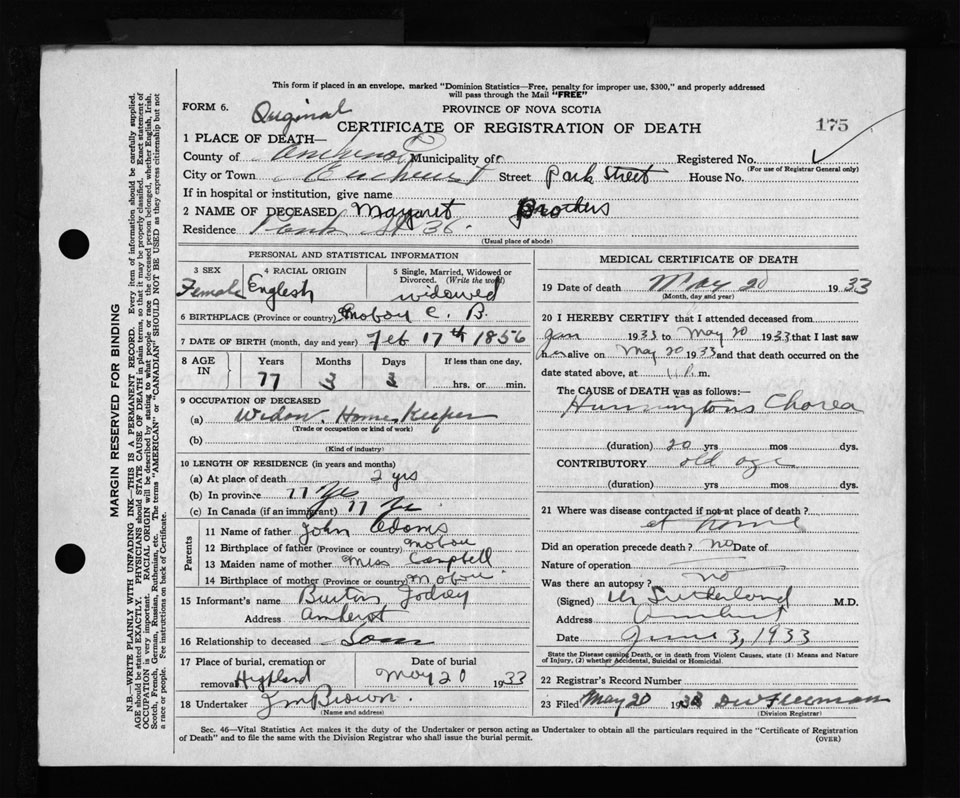 This form if placed in an envelope, marked "Dominion Statistics—Free, penalty for improper use, $300," and properly addressed
will pass through the Mail "FREE"
FORM 6. Original PROVINCE OF NOVA SCOTIA
CERTIFICATE OF REGISTRATION OF DEATH 175
1 PLACE OF DEATH—
County of Municipality of Registered No.
(For use of Registrar General only)
City or Town Street Park Street House No.
If in hospital or institution, give name
2 NAME OF DECEASED Margaret Brothers
Residence Park St 36.
(Usual place of abode)
PERSONAL AND STATISTICAL INFORMATION
3 SEX 4 RACIAL ORIGIN 5 Single, Married, Widowed or
Divorced. (Write the word)
Female English widowed
6 BIRTHPLACE (Province or country) C. B.
7 DATE OF BIRTH (month, day and year) Feb 17th 1856
8 AGE IN Years Months Days If less than one day,
77 3 3 hrs. or min.
9 OCCUPATION OF DECEASED
(a) Widow, Home Keeper
(Trade or occupation or kind of work)
(b)
(Kind of industry)
10 LENGTH OF RESIDENCE (in years and months)
(a) At place of death 2 yrs
(b) In province 77 Yrs
(c) In Canada (if an immigrant) 77 Yr
Parents
11 Name of father John Adams
12 Birthplace of father (Province or country) Mabou
13 Maiden name of mother Miss Campbell
14 Birthplace of mother (Province or country) Mabou
15 Informant's name Burton
Address Amherst
16 Relationship to deceased Son
17 Place of burial, cremation or Date of burial
removal Highland May 20 1933
18 Undertaker J M Brown.
(Name and address)
MEDICAL CERTIFICATE OF DEATH
19 Date of death May 20 1933
(Month, day and year)
20 I HEREBY CERTIFY that I attended deceased from
Jan 1933 to May 20 1933 that I last saw
her alive on May 20 1933 and that death occurred on the
date stated above, at 11 P. m.
The CAUSE OF DEATH was as follows:—
Chorea
(duration) 20 yrs mos dys.
CONTRIBUTORY old age
(duration) yrs. mos. dys.
21 Where was disease contracted if not at place of death?
at home
Did an operation precede death? no Date of
Nature of operation
Was there an autopsy? no
(Signed) Sutherland M.D
Address Amherst
Date June 3, 1933
State the Disease causing Death, or in death from Violent Causes, state (1) Means and Nature
of Injury, (2) whether Accidental, Suicidal or Homicidal.
22 Registrar's Record Number
23 Filed May 20 1933
(Division Registrar)
Sec. 46—Vital Statistics Act makes it the duty of the Undertaker or person acting as Undertaker to obtain all the particulars required in the "Certificate of Registration
of Death" and to file the same with the Division Registrar who shall issue the burial permit. (OVER)
MARGIN RESERVED FOR BINDING
N.B.—WRITE PLAINLY WITH UNFADING INK—THIS IS A PERMANENT RECORD. Every item of information should be carefully supplied.
AGE should be stated EXACTLY. PHYSICIANS should STATE CAUSE OF DEATH in plain terms, so that it may be properly classified. Exact statement of
OCCUPATION is very important. RACIAL ORIGIN will be described by stating to what people or race the deceased person belonged, whether English, Irish,
Scotch, French, German, Russian, Ruthenian, etc. The terms "AMERICAN" or "CANADIAN" SHOULD NOT BE USED as they express citizenship but not
a race or people. See instructions on back of Certificate.